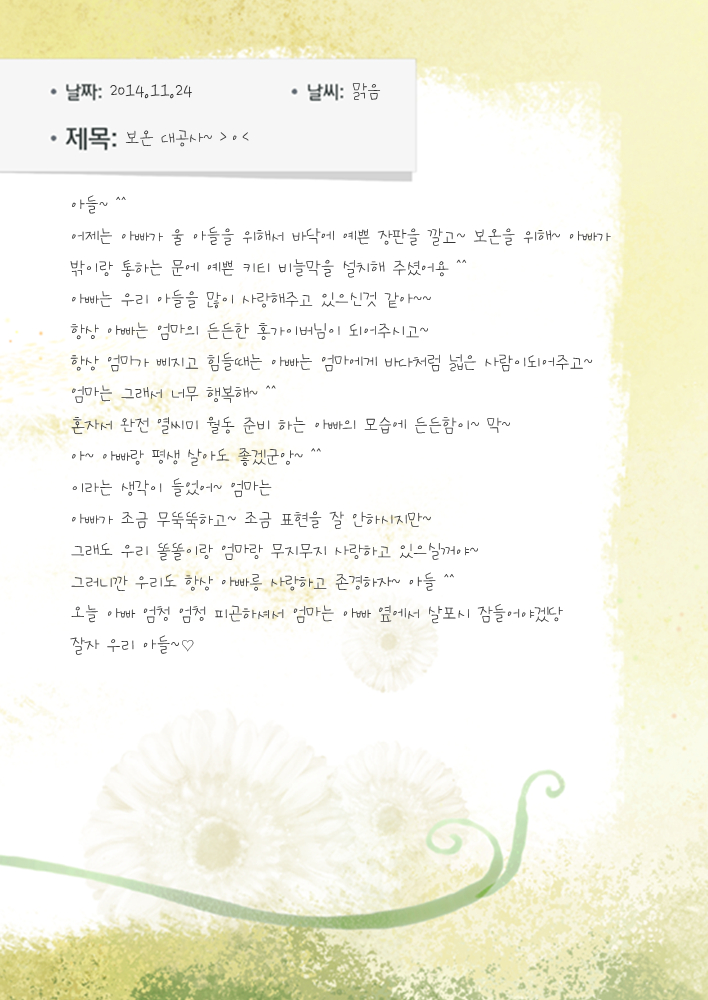 • 날짜: 2014.11.24 • 날씨: 맑음
• 제목: 보온 대공사~ > ∘ <
아들~ ^^
어제는 아빠가 울 아들을 위해서 바닥에 예쁜 장판을 깔고~ 보온을 위해~ 아빠가
밖이랑 통하는 문에 예쁜 키티 비늘막을 설치해 주셨어용 ^^
아빠는 우리 아들을 많이 사랑해주고 있으신것 같아~~
항상 아빠는 엄마의 든든한 홍가이버님이 되어주시고~
항상 엄마가 삐지고 힘들때는 아빠는 엄마에게 바다처럼 넓은 사람이되어주고~
엄마는 그래서 너무 행복해~ ^^
혼자서 완전 열씨미 월동 준비 하는 아빠의 모습에 든든함이~ 막~
아~ 아빠랑 평생 살아도 좋겠군앙~ ^^
이라는 생각이 들었어~ 엄마는
아빠가 조금 무뚝뚝하고~ 조금 표현을 잘 안하시지만~
그래도 우리 똘똘이랑 엄마랑 무지무지 사랑하고 있으실꺼야~
그러니깐 우리도 항상 아빠릉 사랑하고 존경하자~ 아들 ^^
오늘 아빠 엄청 엄청 피곤하셔서 엄마는 아빠 옆에서 살포시 잠들어야겠당
잘자 우리 아들~♡